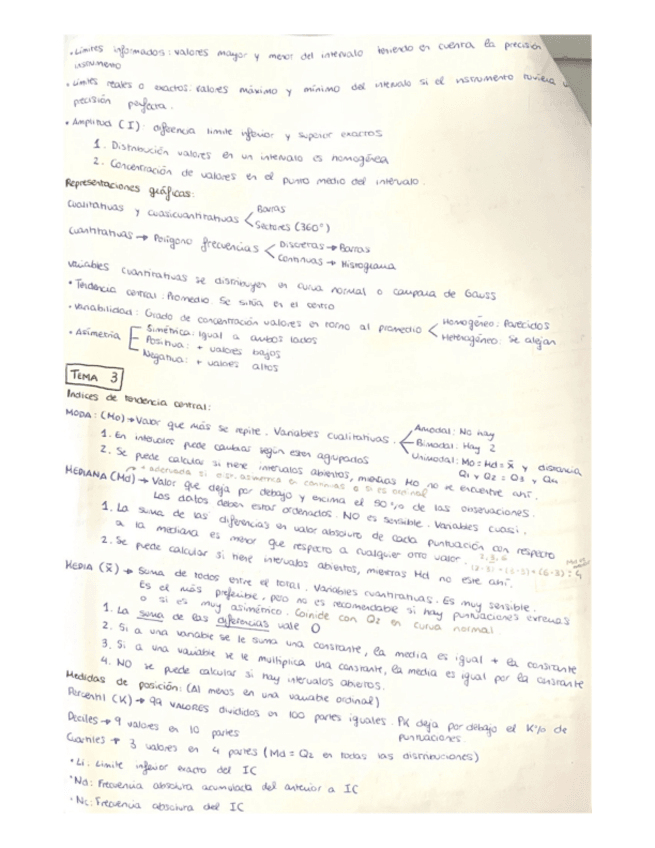 • Límites informados: valores mayor y menor del intervalo teniendo en cuenta la precisión
instrumento
• Límites reales o exactos: valores máximo y mínimo del intervalo si el instrumento tuviera
precisión perfecta.
• Amplitud (I): diferencia límite inferior y superior exactos
1. Distribución valores en un intervalo es homogénea
2. Concentración de valores en el punto medio del intervalo.
Representaciones gráficas:
Cualitativas y cuasicuantitativas < Barras
Sectores (360°)
Cuantitativas → Polígono frecuencias < Discretas → Barras
Continuas → Histograma
Variables cuantitativas se distribuyen en curva normal o campana de Gauss
• Tendencia central: Promedio. Se sitúa en el centro
• Variabilidad: Grado de concentración valores en torno al promedio < Homogéneo: Parecidos
Heterogéneo: Se alejan
• Asimetría [ Simétrica: Igual a ambos lados
Positiva: + valores bajos
Negativa: + valores altos
TEMA 3
Índices de tendencia central:
MODA: (Mo) → Valor que más se repite. Variables cualitativas. < Amodal: No hay
Bimodal: Hay 2
Unimodal: Mo = Md = x̄ y distancia
Q1 y Q2 = Q3 y Q4
1. En intervalos puede cambiar según estén agrupados
2. Se puede calcular si tiene intervalos abiertos, mientras Mo no se encuentre ahí.
+ adecuada si distr. asimétrica en continuas o si es ordinal
MEDIANA (Md) → Valor que deja por debajo y encima el 50% de las observaciones.
Los datos deben estar ordenados. NO es sensible. Variables cuasi.
1. La suma de las diferencias en valor absoluto de cada puntuación con respecto
a la mediana es menor que respecto a cualquier otro valor.
2. Se puede calcular si tiene intervalos abiertos, mientras Md no esté ahí.
MEDIA (x̄) → Suma de todos entre el total. Variables cuantitativas. Es muy sensible.
Es el más preferible, pero no es recomendable si hay puntuaciones extremas
o si es muy asimétrico. Coincide con Q2 en curva normal
1. La suma de las diferencias vale 0
2. Si a una variable se le suma una constante, la media es igual + la constante
3. Si a una variable se le multiplica una constante, la media es igual por la constante
4. NO se puede calcular si hay intervalos abiertos.
Medidas de posición: (Al menos en una variable ordinal)
Percentil (K) → 99 VALORES divididos en 100 partes iguales. PK deja por debajo el K% de
puntuaciones
Deciles → 9 valores en 10 partes
Cuartiles → 3 valores en 4 partes (Md = Q2 en todas las distribuciones)
• Li: Límite inferior exacto del IC
• Nd: Frecuencia absoluta acumulada del anterior a IC
• Nc: Frecuencia absoluta del IC